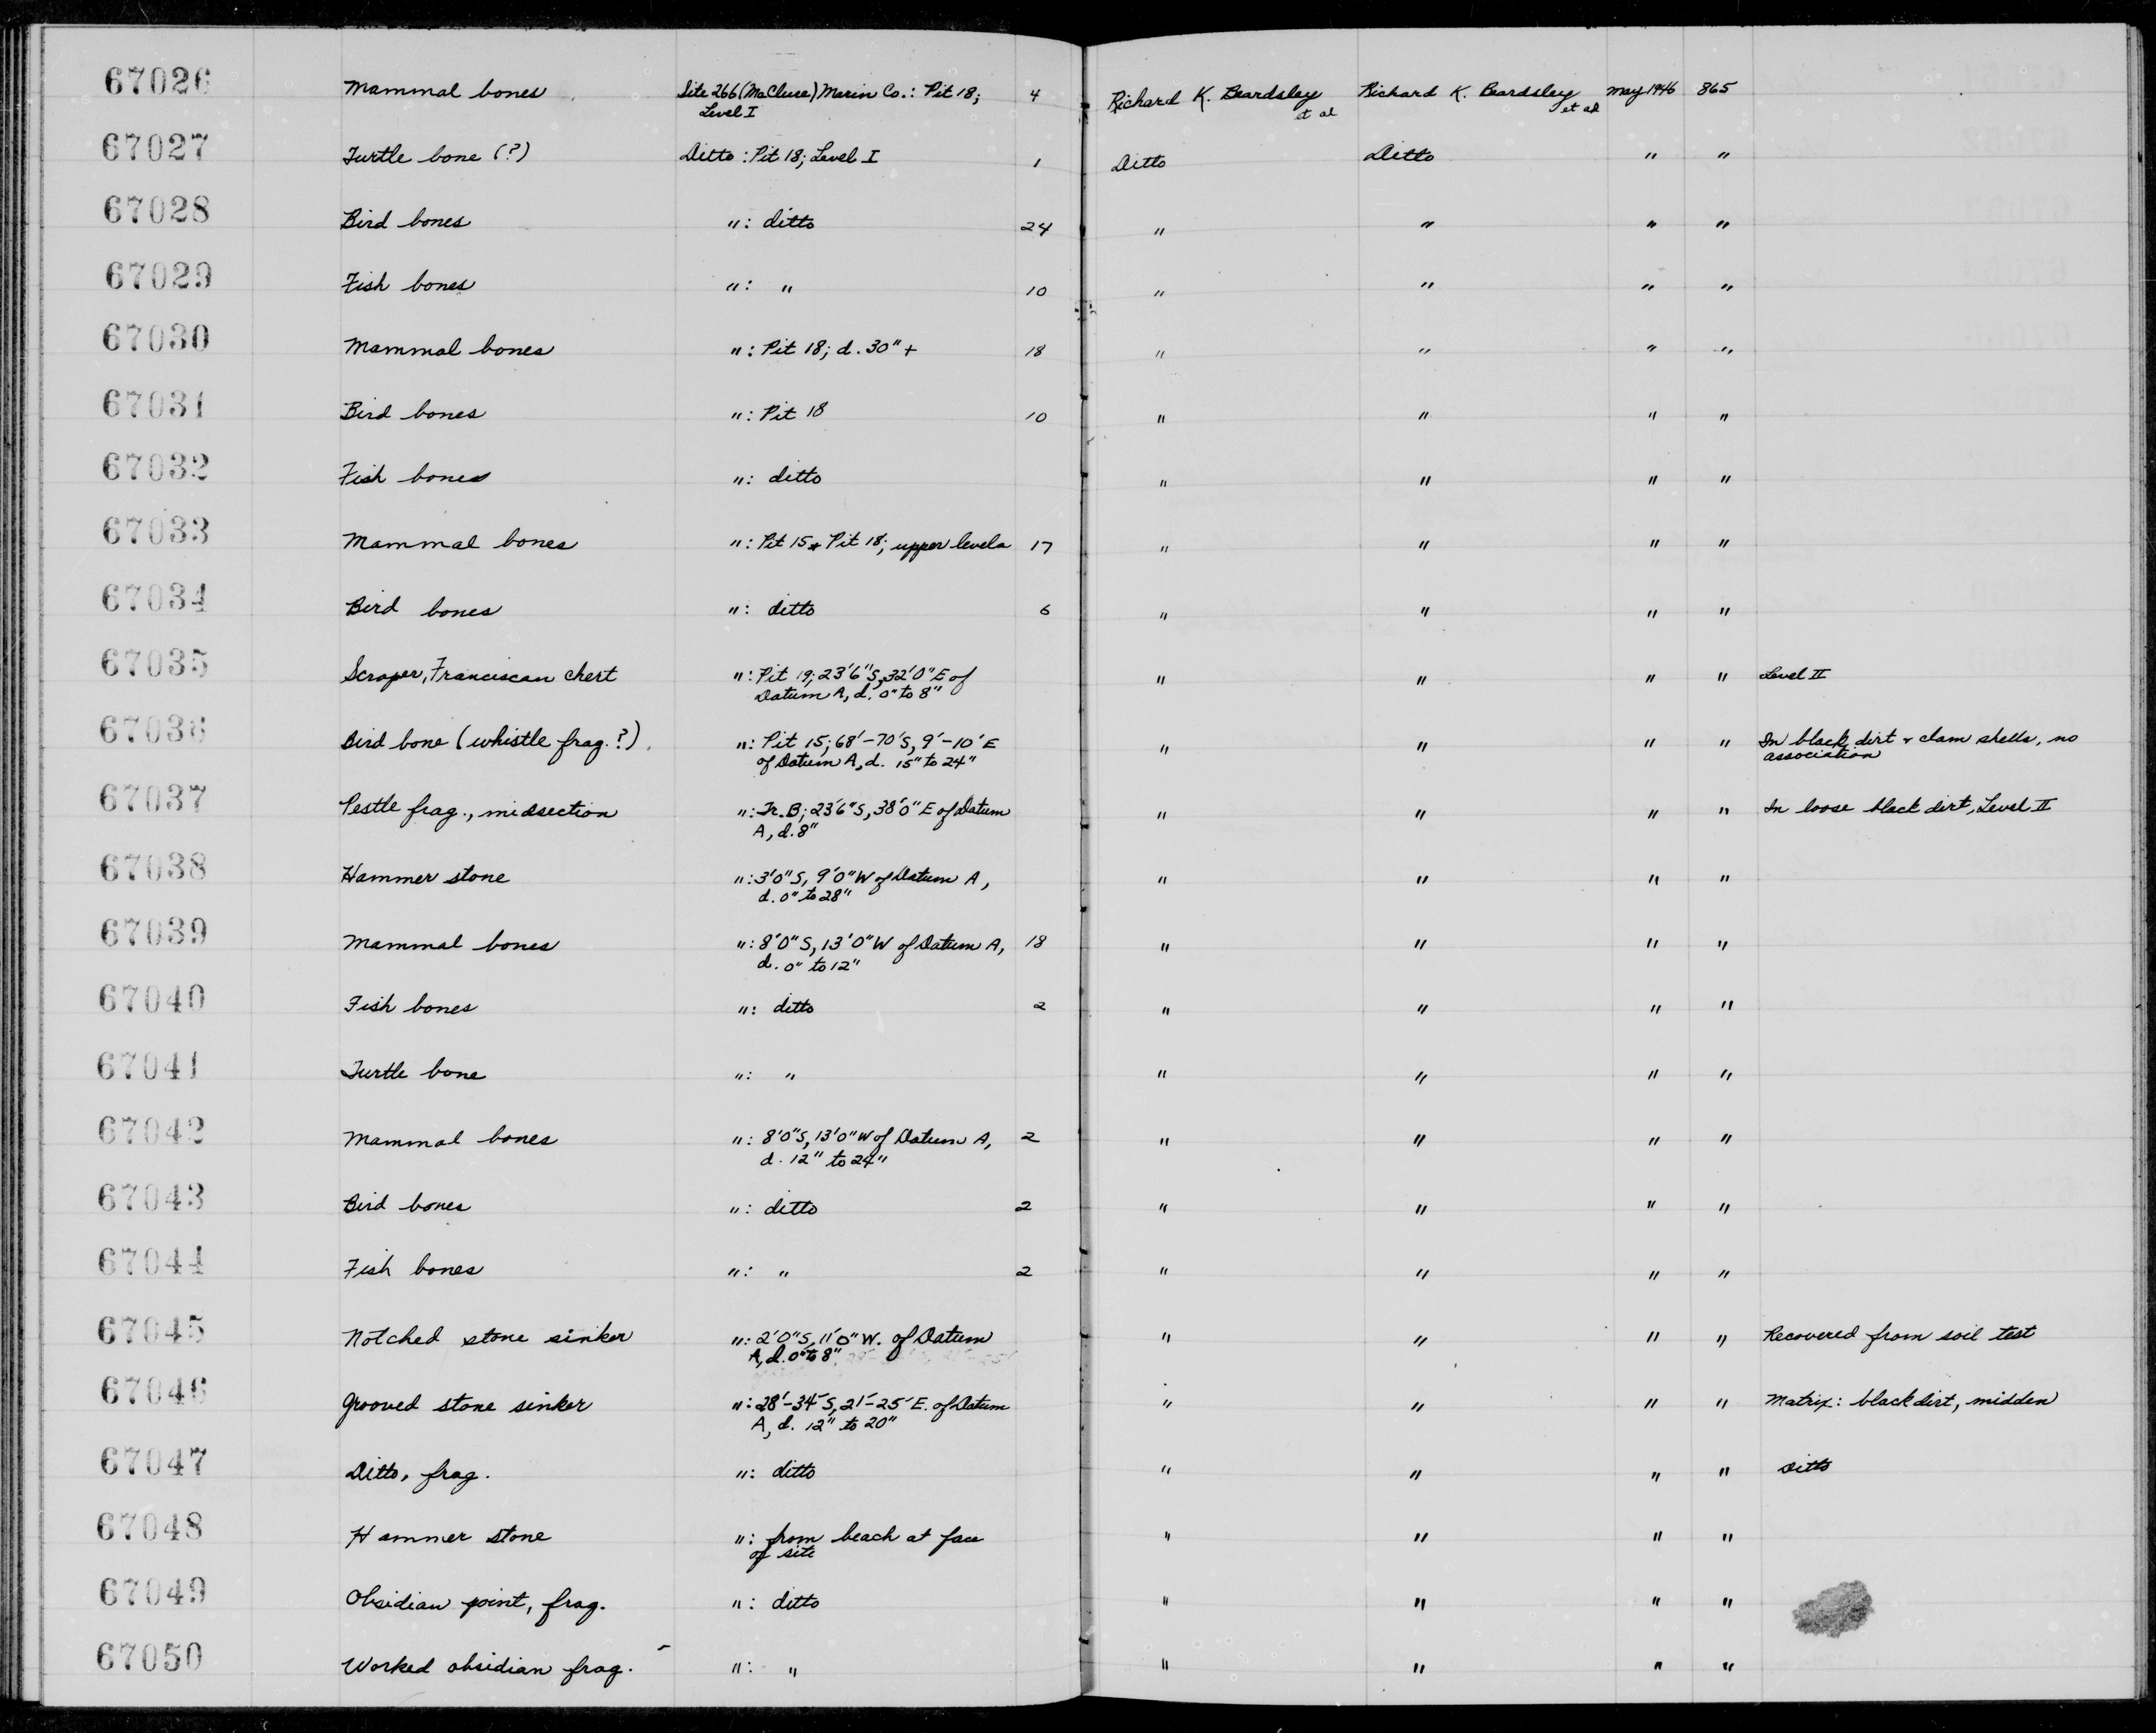 67026 Mammal bones Site 266 (McClure) Marin Co.: Pit 18; 4 Richard K. Beardsley Richard K. Beardsley May 1946 865
Level I et al et al
67027 Turtle bone (?) Ditto: Pit 18; Level I 1 Ditto Ditto " "
67028 Bird bones ": ditto 24 " " " "
67029 Fish bones ": " 10 " " " "
67030 Mammal bones ": Pit 18; d. 30"+ 18 " " " "
67031 Bird bones ": Pit 18 10 " " " "
67032 Fish bones ": ditto " " " "
67033 Mammal bones ": Pit 15 + Pit 18; upper levels 17 " " " "
67034 Bird bones ": ditto 6 " " " "
67035 Scraper, Franciscan chert ": Pit 19; 23'6"S, 32'0"E of " " " " Level II
Datum A, d. 0" to 8"
67036 Bird bone (whistle frag.?) ": Pit 15; 68'-70'S, 9'-10'E " " " " In black dirt + clam shells, no
of Datum A, d. 15" to 24" association
67037 Pestle frag., midsection ": Tr. B; 23'6"S, 38'0"E of Datum " " " " In loose black dirt, Level II
A, d. 8"
67038 Hammer stone ": 3'0"S, 9'0"W of Datum A, " " " "
d. 0" to 28"
67039 Mammal bones ": 8'0"S, 13'0"W of Datum A, 18 " " " "
d. 0" to 12"
67040 Fish bones ": ditto 2 " " " "
67041 Turtle bone ": " " " " "
67042 Mammal bones ": 8'0"S, 13'0"W of Datum A, 2 " " " "
d. 12" to 24"
67043 Bird bones ": ditto 2 " " " "
67044 Fish bones ": " 2 " " " "
67045 Notched stone sinker ": 2'0"S, 11'0"W. of Datum " " " " Recovered from soil test
A, d. 0" to 8"
67046 Grooved stone sinker ": 28'-34'S, 21'-25'E. of Datum " " " " Matrix: black dirt, midden
A, d. 12" to 20"
67047 Ditto, frag. ": ditto " " " " Ditto
67048 Hammer stone ": from beach at face " " " "
of site
67049 Obsidian point, frag. ": ditto " " " "
67050 Worked obsidian frag. ": " " " " "